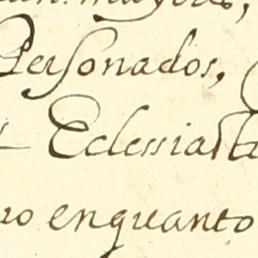 mayores,
Personados,
Eclesiast
ro enquanto